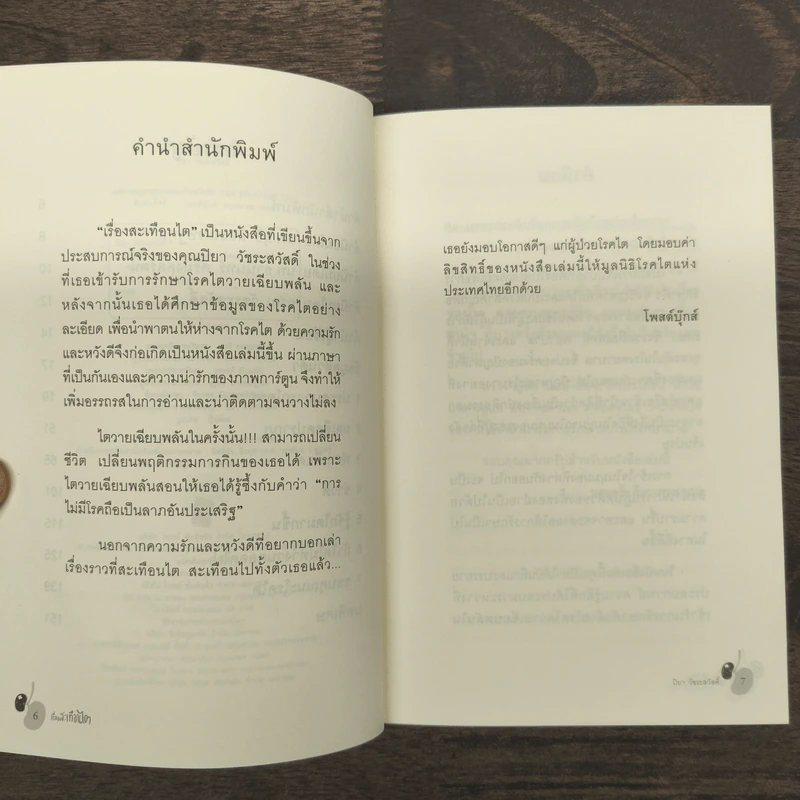 คำนำสำนักพิมพ์
“เรื่องสะเทือนไต” เป็นหนังสือที่เขียนขึ้นจาก
ประสบการณ์จริงของคุณปิยา วัชระสวัสดิ์ ในช่วง
ที่เธอเข้ารับการรักษาโรคไตวายเฉียบพลัน และ
หลังจากนั้นเธอได้ศึกษาข้อมูลของโรคไตอย่าง
ละเอียด เพื่อนำพาตนให้ห่างจากโรคไต ด้วยความรัก
และหวังดีจึงก่อเกิดเป็นหนังสือเล่มนี้ขึ้น ผ่านภาษา
ที่เป็นกันเองและความน่ารักของภาพการ์ตูน จึงทำให้
เพิ่มอรรถรสในการอ่านและน่าติดตามจนวางไม่ลง
ไตวายเฉียบพลันในครั้งนั้น!!! สามารถเปลี่ยน
ชีวิต เปลี่ยนพฤติกรรมการกินของเธอได้ เพราะ
ไตวายเฉียบพลันสอนให้เธอได้รู้ซึ้งกับคำว่า “การ
ไม่มีโรคถือเป็นลาภอันประเสริฐ”
นอกจากความรักและหวังดีที่อยากบอกเล่า
เรื่องราวที่สะเทือนไต สะเทือนไปทั้งตัวเธอแล้ว...
6
เธอยังมอบโอกาสดีๆ แก่ผู้ป่วยโรคไต โดยมอบค่า
ลิขสิทธิ์ของหนังสือเล่มนี้ให้มูลนิธิโรคไตแห่ง
ประเทศไทยอีกด้วย
โพสต์บุ๊กส์
ปิยา วัชระสวัสดิ์ 7